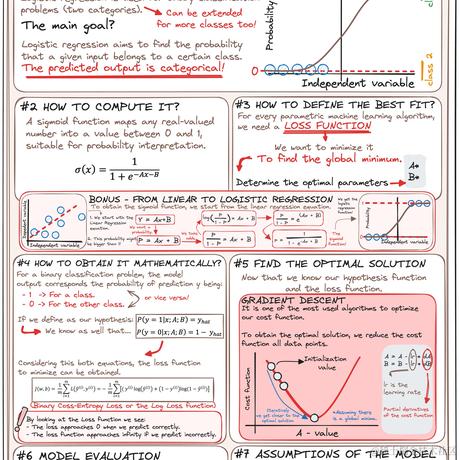 problems (two categories).
Can be extended
for more classes too!
The main goal?
Logistic regression aims to find the probability
that a given input belongs to a certain class.
The predicted output is categorical!
Probability
0
class 2
Independent variable
#2 HOW TO COMPUTE IT?
A sigmoid function maps any real-valued
number into a value between 0 and 1,
suitable for probability interpretation.
σ(x) = 1 / (1 + e^(-Ax-B))
#3 HOW TO DEFINE THE BEST FIT?
For every parametric machine learning algorithm,
we need a LOSS FUNCTION
We want to minimize it
To find the global minimum.
Determine the optimal parameters
A*
B*
BONUS - FROM LINEAR TO LOGISTIC REGRESSION
To obtain the sigmoid function, we start from the linear regression equation.
Independent variable
1. We start with the
Linear Equation
Y = Ax+B
2. This probability might
be bigger than 1!
P = Ax + B
Probability
Independent variable
#4 HOW TO OBTAIN IT MATHEMATICALLY?
For a binary classification problem, the model
output corresponds the probability of prediction y being:
- 1 -> For a class.
- 0 -> For the other class.
or vice versa!
If we define as our hypothesis:
P(y = 1|x; A; B) = yhat
We know as well that...
P(y = 0|x; A; B) = 1 − yhat
Considering this both equations, the loss function
to minimize can be obtained.
Binary Coss-Entropy Loss or the Log Loss function.
By looking at the Loss function we see:
- The loss approaches 0 when we predict correctly.
- The loss function approaches infinity if we predict incorrectly.
#5 FIND THE OPTIMAL SOLUTION
Now that we know our hypothesis function
and the loss function.
GRADIENT DESCENT
It is one of the most used algorithms to optimize
our cost function.
To obtain the optimal solution, we reduce the cost
function all data points.
Cost function
Initialization
value
Iteratively
we get closer to our
optimal solution
*Assuming there
is a global minimum.
A - value
lr is the
learning rate
Partial derivatives
of the cost function
#6 MODEL EVALUATION
#7 ASSUMPTIONS OF THE MODEL